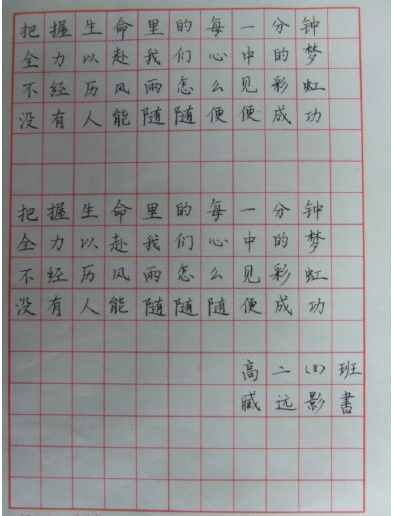 把握生命里的每一分钟
全力以赴我们心中的梦
不经历风雨怎么见彩虹
没有人能随随便便成功
把握生命里的每一分钟
全力以赴我们心中的梦
不经历风雨怎么见彩虹
没有人能随随随便成功
高二(8)班
臧远影書